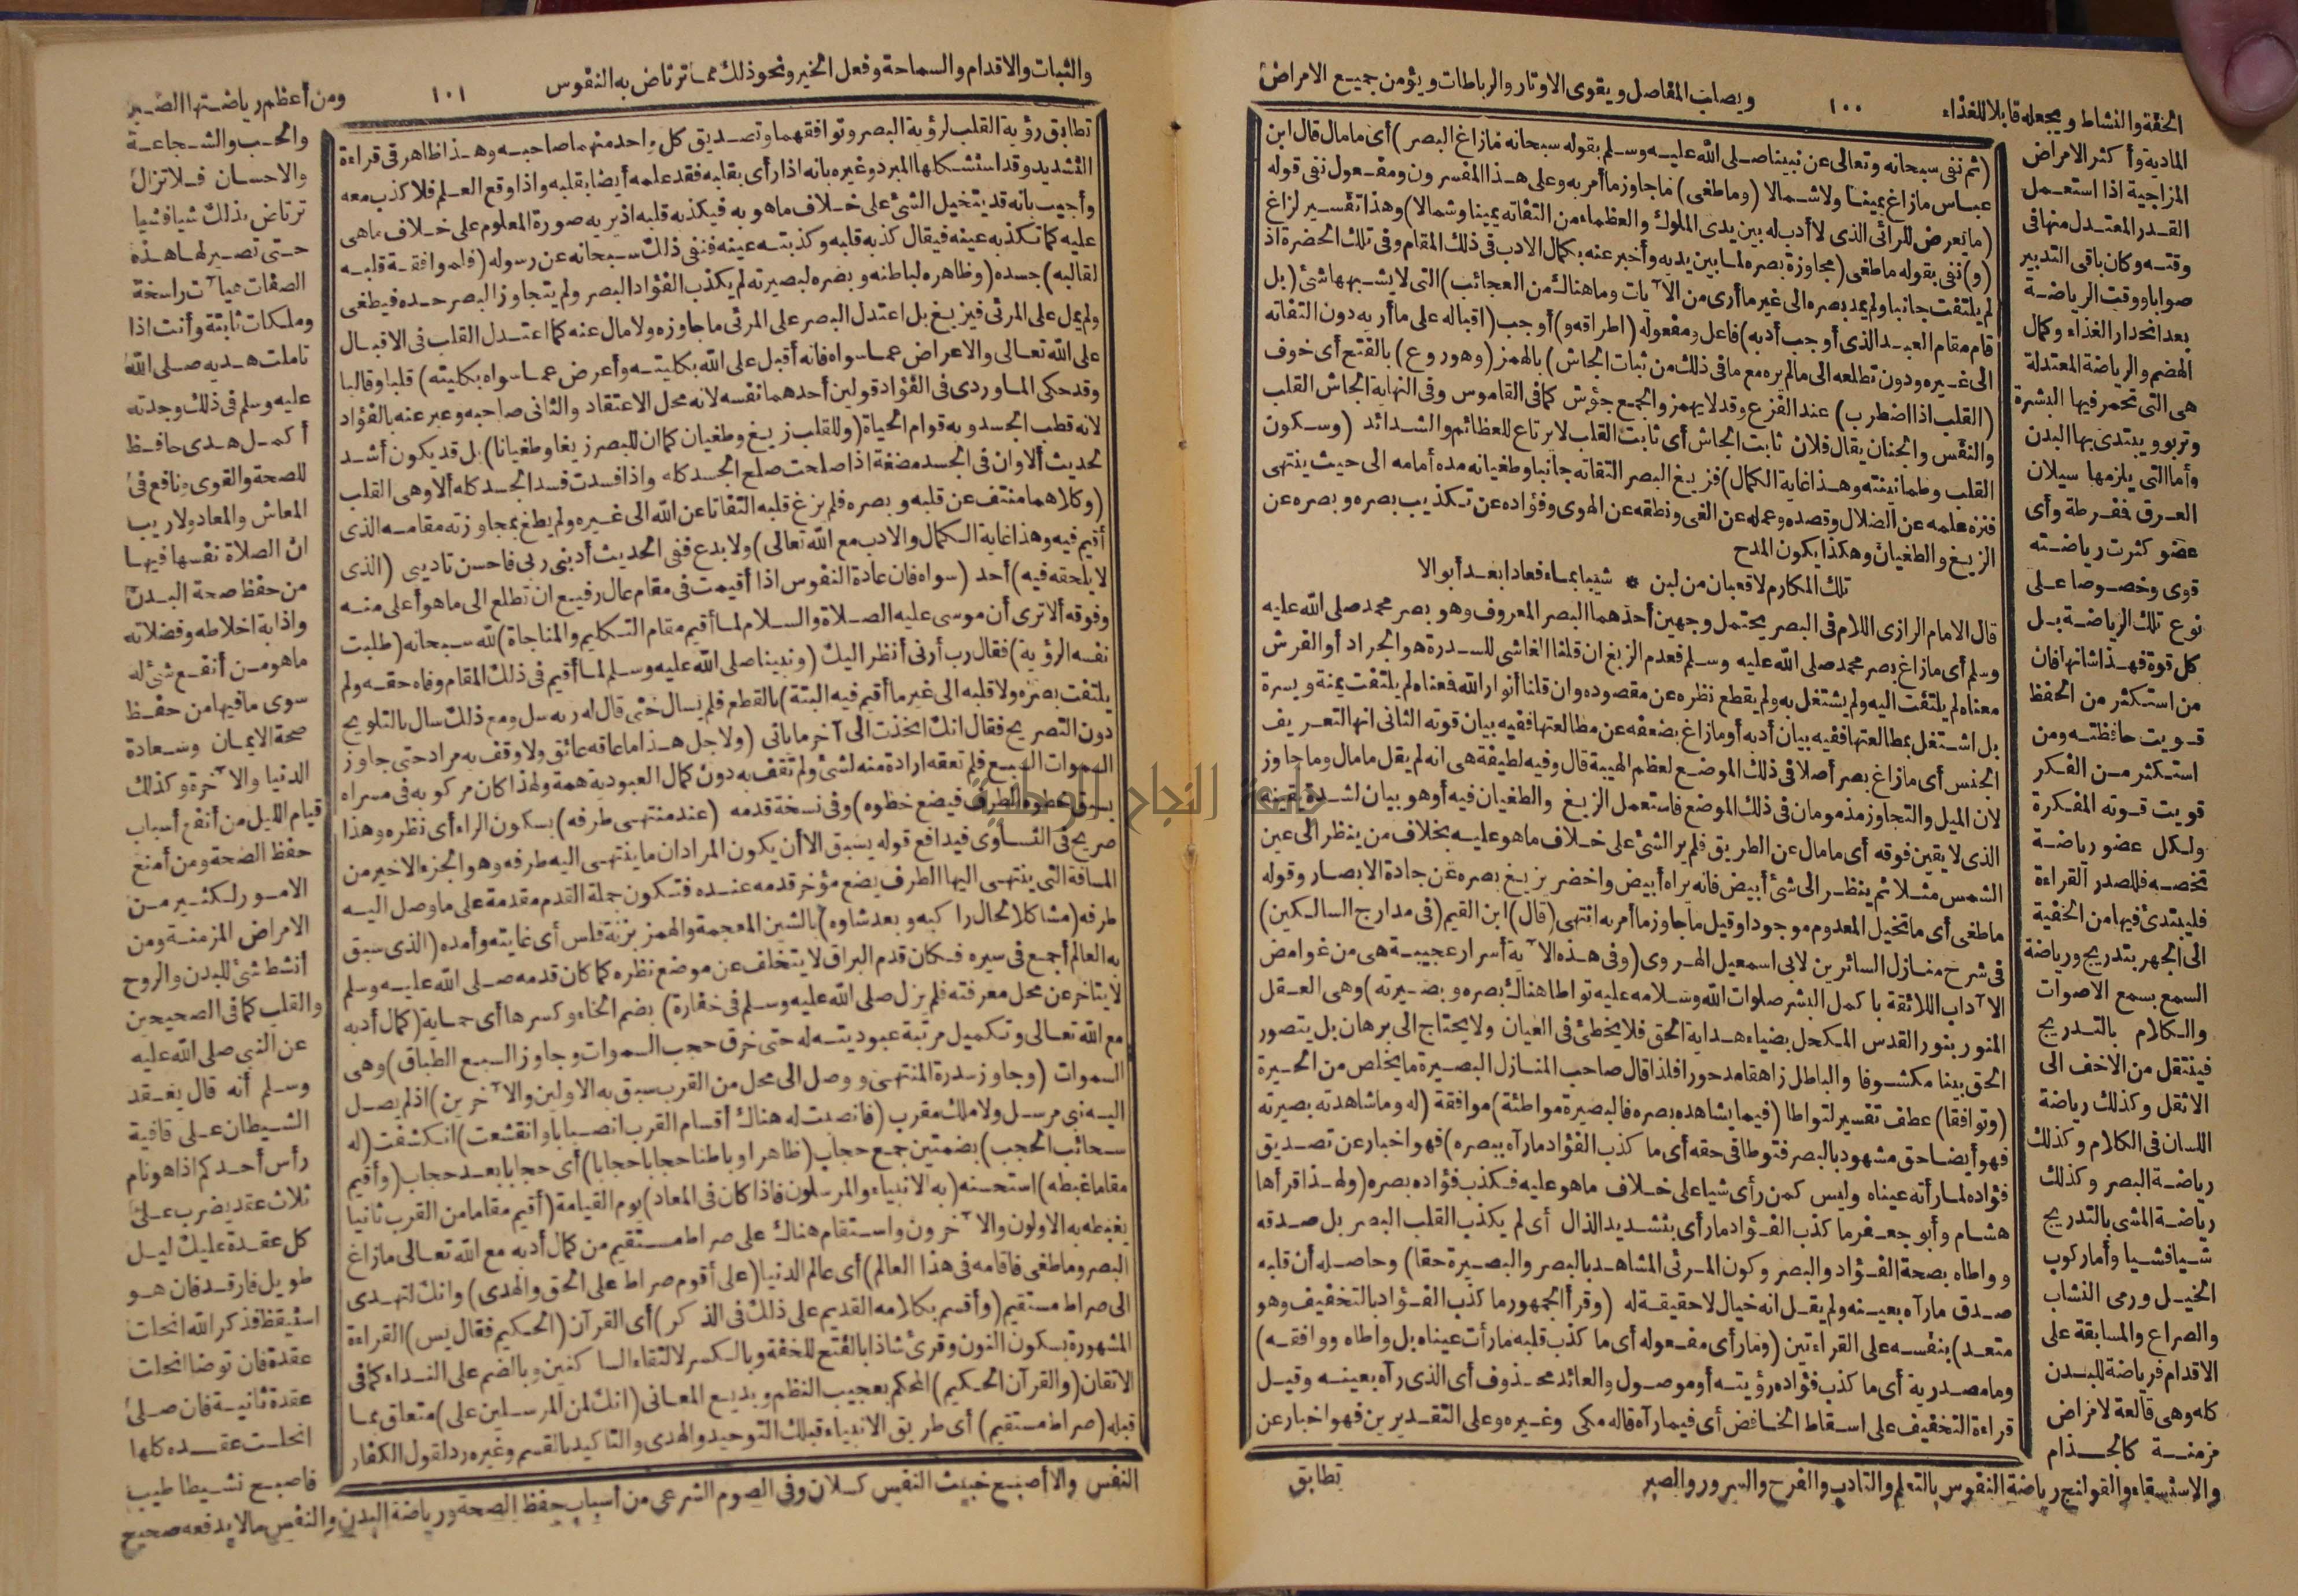 ١٠٠
(ثم نفى سبحانه وتعالى عن نبينا صلى الله عليه وسلم بقوله سبحانه مازاغ البصر) أى مامال قال ابن
عباس مازاغ يمينا ولا شمالا (وماطغى) ما جاوز ما أمر به وعلى هذا المفسرون ومفعول نفى قوله
(ما يعرض للرائى الذى لا أدب له بين يدى الملوك والعظماء من التفاته يمينا وشمالا) وهذا تفسير لزاغ
(و) نفى بقوله ماطغى (مجاوزة بصره لما بين يديه وأخبر عنه بكمال الادب فى ذلك المقام وفى تلك الحضرة اذ
لم يلتفت جانبا ولم يمد بصره الى غير ما أرى من الآيات وما هناك من العجائب) التى لا يشبهها شئ (بل
قام مقام العبد الذى أوجب أدبه) فاعل ومفعوله (اطراقه و) أوجب (اقباله على ما أريه دون التفاته
الى غيره ودون تطلعه الى مالم يره مع ما فى ذلك من ثبات الجاش) بالهمز (وهو روع) بالفتح أى خوف
(القلب اذا اضطرب) عند الفزع وقد لا يهمز والجمع جؤش كما فى القاموس وفى النهاية الجاش القلب
والنفس والجنان يقال فلان ثابت الجاش أى ثابت القلب لا يرتاع للعظائم والشدائد (وسكون
القلب وطمانينته وهذا غاية الكمال) فزيغ البصر التفاته جانبا وطغيانه مده أمامه الى حيث ينتهى
فنزه علمه عن الضلال وقصده وعمله عن الغى ونطقه عن الهوى وفؤاده عن تكذيب بصره وبصره عن
الزيغ والطغيان وهكذا يكون المدح
تلك المكارم لا قعبان من لبن * شيبا بماء فعادا بعد أبوالا
قال الامام الرازى اللام فى البصر يحتمل وجهين أحدهما البصر المعروف وهو بصر محمد صلى الله عليه
وسلم أى مازاغ بصر محمد صلى الله عليه وسلم فعدم الزيغ ان قلنا الغاشى للسدرة هو الجراد أو الفرش
معناه لم يلتفت اليه ولم يشتغل به ولم يقطع نظره عن مقصوده وان قلنا أنوار الله فمعناه لم يلتفت يمنة ويسرة
بل اشتغل بمطالعتها ففيه بيان أدبه أو مازاغ بضعفه عن مطالعتها ففيه بيان قوته الثانى انها التعريف
الجنس أى مازاغ بصر أصلا فى ذلك الموضع لعظم الهيبة قال وفيه لطيفة هى انه لم يقل مامال وما جاوز
لان الميل والتجاوز مذمومان فى ذلك الموضع فاستعمل الزيغ والطغيان فيه أو هو بيان لشدة يقينه
الذى لا يقين فوقه أى مامال عن الطريق فلم ير الشئ على خلاف ما هو عليه بخلاف من ينظر الى عين
الشمس مثلا ثم ينظر الى شئ أبيض فانه يراه أبيض واخضر يزيغ بصره عن جادة الابصار وقوله
ماطغى أى ما تخيل المعدوم موجودا وقيل ما جاوز ما أمر به انتهى (قال) ابن القيم (فى مدارج السالكين)
فى شرح منازل السائرين لابى اسمعيل الهروى (وفى هذه الآية أسرار عجيبة هى من غوامض
الآداب اللائقة باكمل البشر صلوات الله وسلامه عليه تواطا هناك بصره وبصيرته) وهى العقل
المنور بنور القدس المكحل بضياء هداية الحق فلا يخطئ فى العيان ولا يحتاج الى برهان بل يتصور
الحق بينا مكشوفا والباطل زاهقا مدحورا فلذا قال صاحب المنازل البصيرة ما يخلص من الحيرة
(وتوافقا) عطف تفسير لتواطا (فيما يشاهده بصره فالبصيرة مواطئة) موافقة (له وما شاهدته بصيرته
فهو أيضا حق مشهود بالبصر فتوطا فى حقه أى ما كذب الفؤاد ما رآه ببصره) فهو اخبار عن تصديق
فؤاده لما رأته عيناه وليس كمن رأى شيا على خلاف ما هو عليه فكذب فؤاده بصره (ولهذا قرأها
هشام وأبو جعفر ما كذب الفؤاد ما رأى بتشديد الذال أى لم يكذب القلب البصر بل صدقه
وواطاه بصحة الفؤاد والبصر وكون المرئى المشاهد بالبصر والبصيرة حقا) وحاصله أن قلبه
صدق ما رآه بعينه ولم يقل انه خيال لا حقيقة له (وقرأ الجمهور ما كذب الفؤاد بالتخفيف وهو
متعد) بنفسه على القراءتين (وما رأى مفعوله أى ما كذب قلبه ما رأت عيناه بل واطاه ووافقه)
وما مصدرية أى ما كذب فؤاده رؤيته أو موصول والعائد محذوف أى الذى رآه بعينه وقيل
قراءة التخفيف على اسقاط الخافض أى فيما رآه قاله مكى وغيره وعلى التقديرين فهو اخبار عن
تطابق
الخفة والنشاط ويجعله قابلا للغذاء
ويصلب المفاصل ويقوى الاوتار والرباطات ويؤمن جميع الامراض
المادية وأكثر الامراض
المزاجية اذا استعمل
القدر المعتدل منها فى
وقته وكان باقى التدبير
صوابا ووقت الرياضة
بعد انحدار الغذاء وكمال
الهضم والرياضة المعتدلة
هى التى تحمر فيها البشرة
وتربو ويبتدى بها البدن
وأما التى يلزمها سيلان
العرق فمفرطة وأى
عضو كثرت رياضته
قوى وخصوصا على
نوع تلك الرياضة بل
كل قوة فهذا شانها فان
من استكثر من الحفظ
قويت حافظته ومن
استكثر من الفكر
قويت قوته المفكرة
ولكل عضو رياضة
تخصه فللصدر القراءة
فليبتدئ فيها من الخفية
الى الجهر بتدريج ورياضة
السمع بسمع الاصوات
والكلام بالتدريج
فينتقل من الاخف الى
الاثقل وكذلك رياضة
اللسان فى الكلام وكذلك
رياضة البصر وكذلك
رياضة المشى بالتدريج
شيافشيا وأما ركوب
الخيل ورمى النشاب
والصراع والمسابقة على
الاقدام فرياضة للبدن
كله وهى قالعة لامراض
مزمنة كالجذام
والاستسقاء والقولنج رياضة النفوس بالتعلم والتادب والفرح والسرور والصبر
١٠١
والثبات والاقدام والسماحة وفعل الخير ونحو ذلك مما ترتاض به النفوس
ومن أعظم رياضتها الصبر
تطابق رؤية القلب لرؤية البصر وتوافقهما وتصديق كل واحد منهما صاحبه وهذا ظاهر فى قراءة
التشديد وقد استشكلها المبرد وغيره بانه اذا رأى بقلبه فقد علمه أيضا بقلبه واذا وقع العلم فلا كذب معه
وأجيب بانه قد يتخيل الشئ على خلاف ما هو به فيكذبه قلبه اذ يريه صورة المعلوم على خلاف ما هى
عليه كما تكذبه عينه فيقال كذبه قلبه وكذبته عينه فنفى ذلك سبحانه عن رسوله (فلموافقة قلبه
لقالبه) جسده (وظاهره لباطنه وبصره لبصيرته لم يكذب الفؤاد البصر ولم يتجاوز البصر حده فيطغى
ولم يمل على المرئى فيزيغ بل اعتدل البصر على المرئى ما جاوزه ولا مال عنه كما اعتدل القلب فى الاقبال
على الله تعالى والاعراض عما سواه فانه أقبل على الله بكليته وأعرض عما سواه بكليته) قلبا وقالبا
وقد حكى الماوردى فى الفؤاد قولين أحدهما نفسه لانه محل الاعتقاد والثانى صاحبه وعبر عنه بالفؤاد
لانه قطب الجسد وبه قوام الحياة (وللقلب زيغ وطغيان كما ان للبصر زيغا وطغيانا) بل قد يكون أشد
لحديث ألا وان فى الجسد مضغة اذا صلحت صلح الجسد كله واذا فسدت فسد الجسد كله ألا وهى القلب
(وكلاهما منتف عن قلبه وبصره فلم يزغ قلبه التفاتا عن الله الى غيره ولم يطغ بمجاوزته مقامه الذى
أقيم فيه وهذا غاية الكمال والادب مع الله تعالى) ولا بدع ففى الحديث أدبنى ربى فاحسن تاديبى (الذى
لا يلحقه فيه) أحد (سواه فان عادة النفوس اذا أقيمت فى مقام عال رفيع ان تطلع الى ما هو أعلى منه
وفوقه ألا ترى أن موسى عليه الصلاة والسلام لما أقيم مقام التكليم والمناجاة) لله سبحانه (طلبت
نفسه الرؤية) فقال رب أرنى أنظر اليك (ونبينا صلى الله عليه وسلم لما أقيم فى ذلك المقام وفاه حقه ولم
يلتفت بصره ولا قلبه الى غير ما أقيم فيه البتة) بالقطع فلم يسال حتى قال له ربه سل ومع ذلك سال بالتلويح
دون التصريح فقال انك اتخذت الى آخر ما ياتى (ولاجل هذا ما عاقه عائق ولا وقف به مراد حتى جاوز
السموات السبع فلم تعقه ارادة منه لشئ ولم تقف به دون كمال العبودية همة ولهذا كان مركوبه فى مسراه
يسبق خطوه الطرف فيضع خطوه) وفى نسخة قدمه (عند منتهى طرفه) بسكون الراء أى نظره وهذا
صريح فى التساوى فيدافع قوله يسبق الا أن يكون المراد ان ما ينتهى اليه طرفه وهو الجزء الاخير من
المسافة التى ينتهى اليها الطرف يضع مؤخر قدمه عنده فتكون جملة القدم مقدمة على ما وصل اليه
طرفه (مشاكلا لحال راكبه وبعد شاوه) بالشين المعجمة والهمز بزنة فلس أى غايته وأمده (الذى سبق
به العالم أجمع فى سيره فكان قدم البراق لا يتخلف عن موضع نظره كما كان قدمه صلى الله عليه وسلم
لا يتاخر عن محل معرفته فلم يزل صلى الله عليه وسلم فى خفارة) بضم الخاء وكسرها أى حماية (كمال أدبه
مع الله تعالى وتكميل مرتبة عبوديته له حتى خرق حجب السموات وجاوز السبع الطباق) وهى
السموات (وجاوز سدرة المنتهى ووصل الى محل من القرب سبق به الاولين والآخرين) اذ لم يصل
اليه نبى مرسل ولا ملك مقرب (فانصبت له هناك أقسام القرب انصبابا وانقشعت) انكشفت (له
سحائب الحجب) بضمتين جمع حجاب (ظاهرا وباطنا حجابا حجابا) أى حجابا بعد حجاب (وأقيم
مقاما غبطه) استحسنه (به الانبياء والمرسلون فاذا كان فى المعاد) يوم القيامة (أقيم مقاما من القرب ثانيا
يغبطه به الاولون والآخرون واستقام هناك على صراط مستقيم من كمال أدبه مع الله تعالى مازاغ
البصر وماطغى فاقامه فى هذا العالم) أى عالم الدنيا (على أقوم صراط على الحق والهدى) وانك لتهدى
الى صراط مستقيم (وأقسم بكلامه القديم على ذلك فى الذكر) أى القرآن (الحكيم فقال يس) القراءة
المشهورة بسكون النون وقرئ شاذا بالفتح للخفة وبالكسر لالتقاء الساكنين وبالضم على النداء كما فى
الاتقان (والقرآن الحكيم) المحكم بعجيب النظم وبديع المعانى (انك لمن المرسلين على) متعلق بما
قبله (صراط مستقيم) أى طريق الانبياء قبلك التوحيد والهدى والتاكيد بالقسم وغيره رد لقول الكفار
والحب والشجاعة
والاحسان فلا تزال
ترتاض بذلك شيافشيا
حتى تصير لها هذه
الصفات هيآت راسخة
وملكات ثابتة وأنت اذا
تاملت هديه صلى الله
عليه وسلم فى ذلك وجدته
أكمل هدى حافظ
للصحة والقوى ونافع فى
المعاش والمعاد ولا ريب
ان الصلاة نفسها فيها
من حفظ صحة البدن
واذابة اخلاطه وفضلاته
ما هو من أنفع شئ له
سوى ما فيها من حفظ
صحة الايمان وسعادة
الدنيا والآخرة وكذلك
قيام الليل من أنفع أسباب
حفظ الصحة ومن أمنع
الامور لكثير من
الامراض المزمنة ومن
أنشط شئ للبدن والروح
والقلب كما فى الصحيحين
عن النبى صلى الله عليه
وسلم أنه قال يعقد
الشيطان على قافية
رأس أحدكم اذا هو نام
ثلاث عقد يضرب على
كل عقدة عليك ليل
طويل فارقد فان هو
استيقظ فذكر الله انحلت
عقدة فان توضا انحلت
عقدة ثانية فان صلى
انحلت عقده كلها
فاصبح نشيطا طيب
النفس والا أصبح خبيث النفس كسلان وفى الصوم الشرعى من أسباب حفظ الصحة ورياضة البدن والنفس مالا يدفعه صحيح